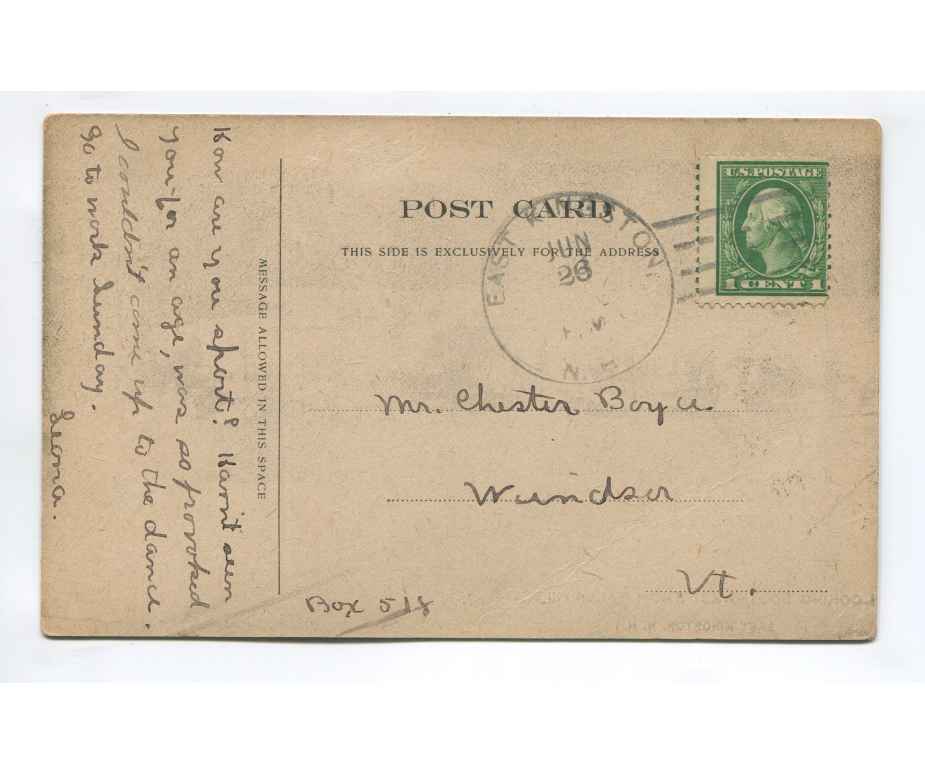 POST CARD
THIS SIDE IS EXCLUSIVELY FOR THE ADDRESS
MESSAGE ALLOWED IN THIS SPACE
U.S. POSTAGE
1 CENT 1
EAST KINGSTON
JUN
26
N. H.
How are you sport? Havn't seen
you for an age, was so provoked
I couldn't come up to the dance.
Go to work Sunday.
Leona.
Mr. Chester Boyce
Windsor
Vt.
Box 518
EAST KINGSTON, N. H.